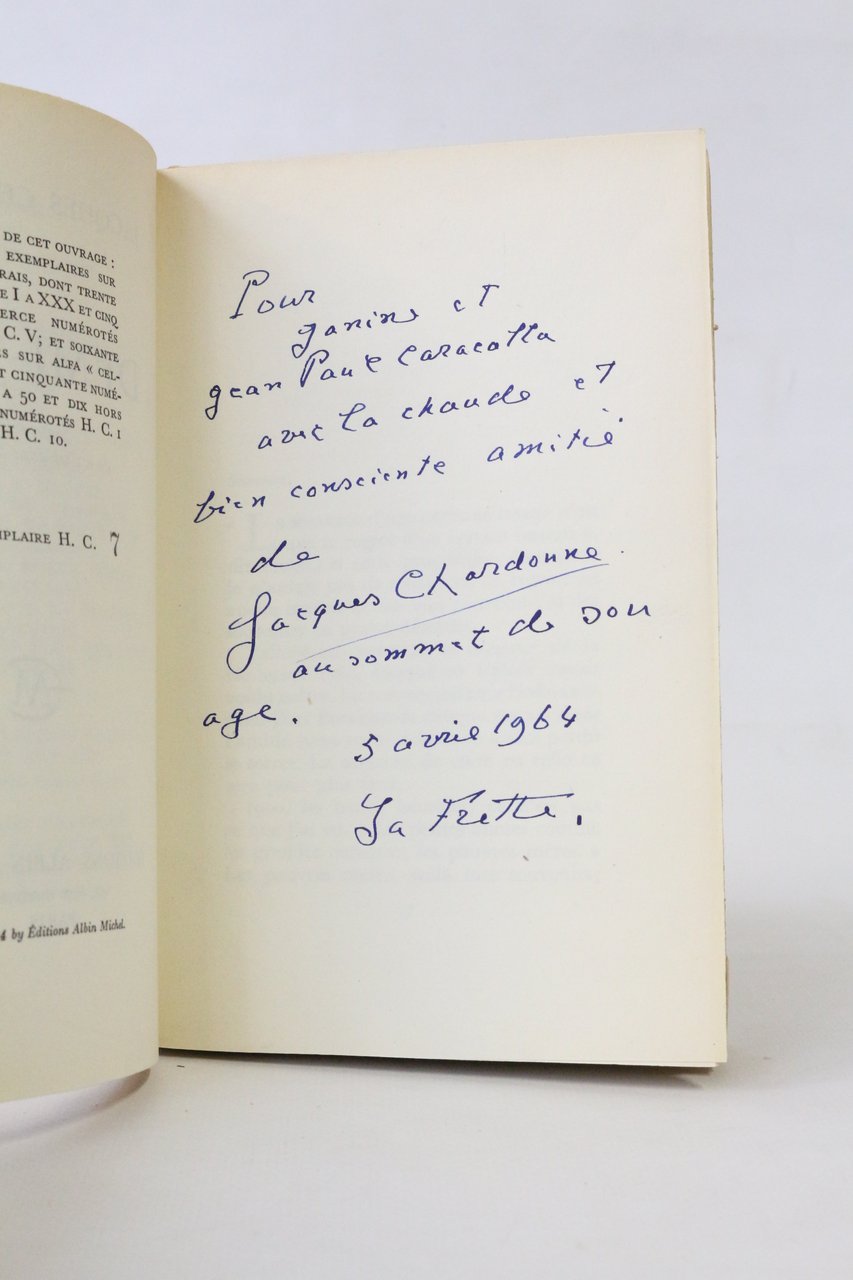 DE CET OUVRAGE :
EXEMPLAIRES SUR
RAIS, DONT TRENTE
E I A XXX ET CINQ
ERCE NUMÉROTÉS
C. V; ET SOIXANTE
ES SUR ALFA « CEL-
T CINQUANTE NUMÉ-
A 50 ET DIX HORS
NUMÉROTÉS H. C. 1
H. C. 10.
MPLAIRE H. C. 7
4 by Éditions Albin Michel.
Pour
Janine et
Jean Paul Caracalla
avec la chaude et
bien consciente amitié
de
Jacques Chardonne.
au sommet de son
age.
5 avril 1964
La Frette.